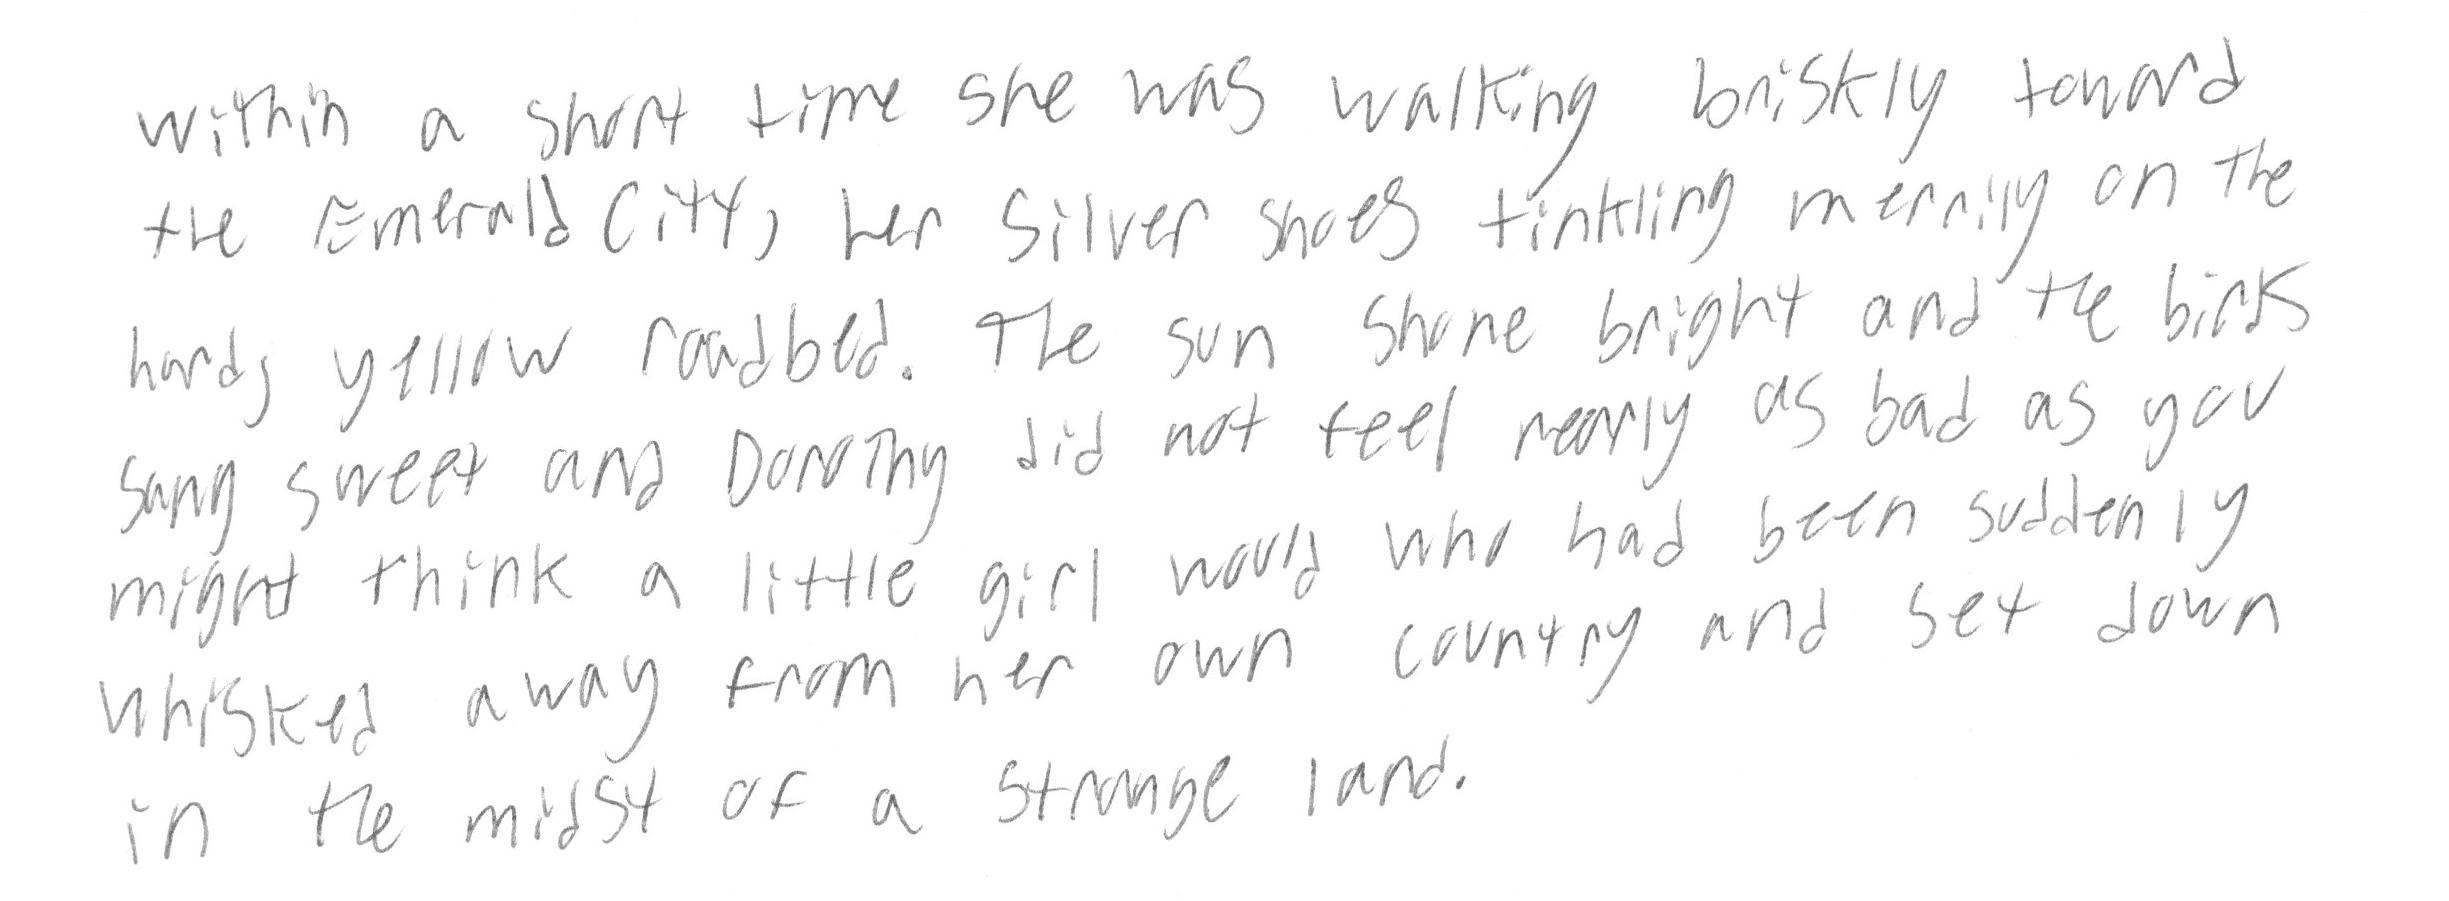 Within a short time she was walking briskly toward
the Emerald City, her Silver Shoes tinkling merrily on the
hard, yellow roadbed. The sun shone bright and the birds
sang sweet and Dorothy did not feel nearly as bad as you
might think a little girl would who had been suddenly
whisked away from her own country and set down
in the midst of a strange land.